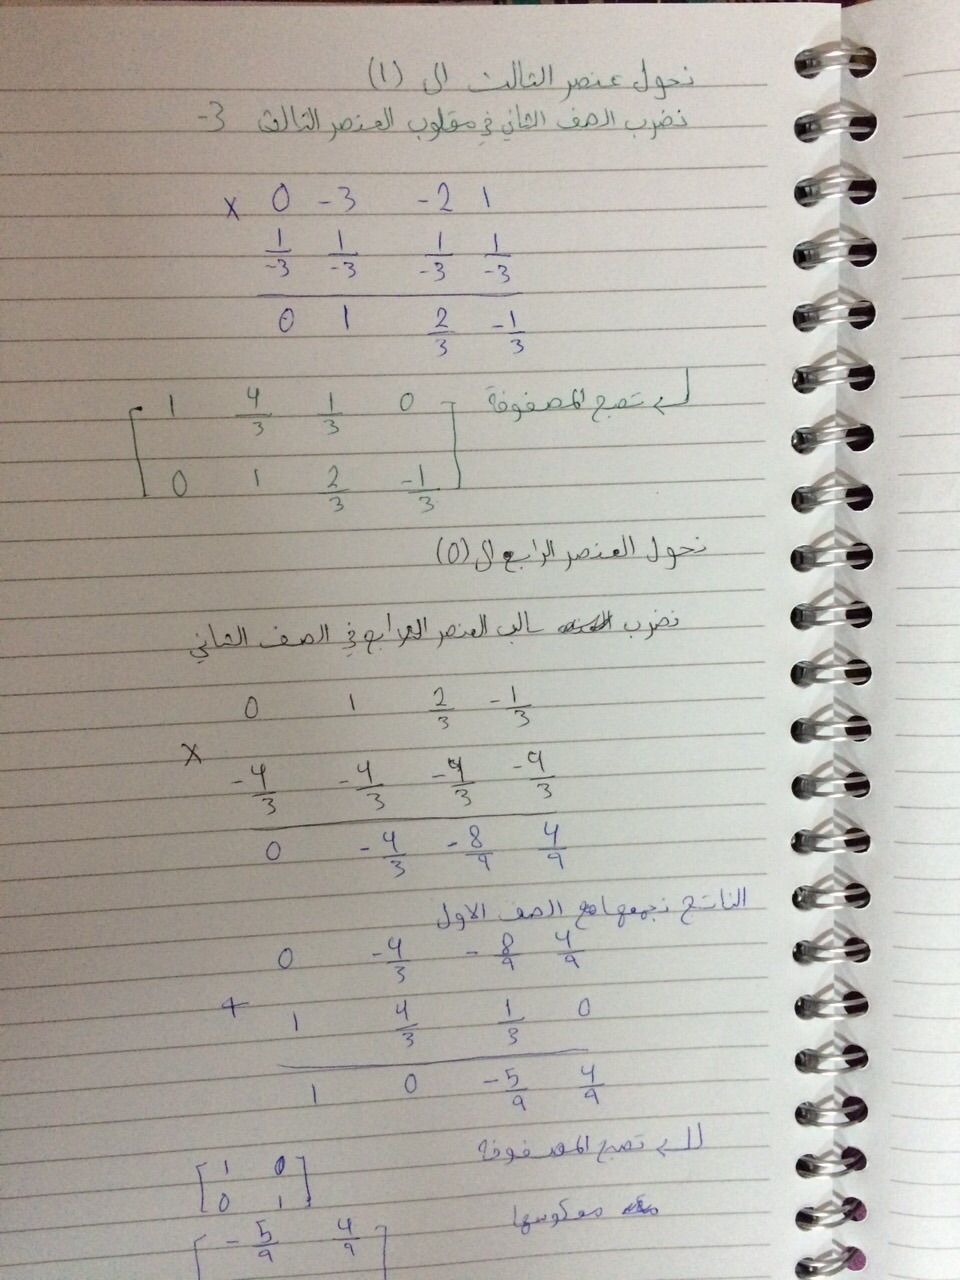 نحول عنصر الثالث الى (1)
نضرب الصف الثاني في مقلوب العنصر الثالث -3
× 0 -3 -2 1
1/-3 1/-3 1/-3 1/-3
0 1 2/3 -1/3
1 4/3 1/3 0 تصبح المصفوفة
0 1 2/3 -1/3
نحول العنصر الرابع الى (0)
نضرب سالب العنصر الرابع في الصف الثاني
0 1 2/3 -1/3
×
-4/3 -4/3 -4/3 -4/3
0 -4/3 -8/9 4/9
الناتج نجمعها مع الصف الاول
0 -4/3 -8/9 4/9
+
1 4/3 1/3 0
1 0 -5/9 4/9
تصبح المصفوفة
1 0
0 1
معكوسها
-5/9 4/9